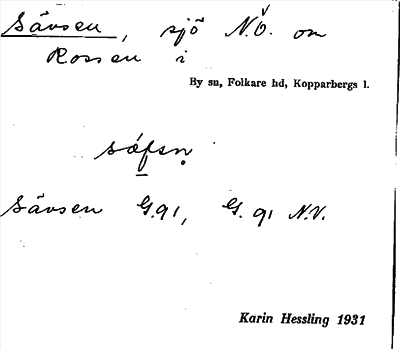 Sävsen, sjö N.Ö. om
Rossen i
By sn, Folkare hd, Kopparbergs l.
sáfsn̥
Sävsen G.91, G. 91 N.V.
Karin Hessling 1931